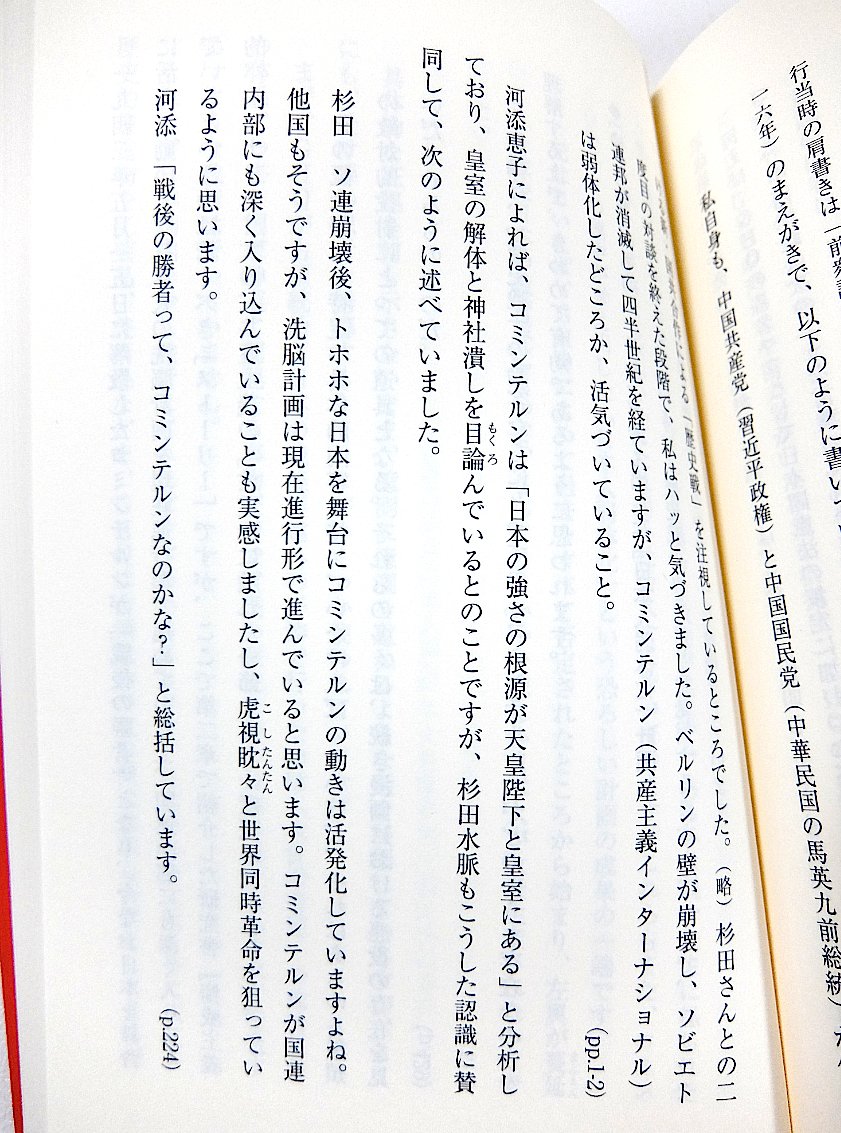 行当時の肩書きは「前衆議
一六年）のまえがきで、以下のように書いて
私自身も、中国共産党（習近平政権）と中国国民党（中華民国の馬英九前総統）が
による「歴史戦」を注視しているところでした。（略）杉田さんとの二
度目の対談を終えた段階で、私はハッと気づきました。ベルリンの壁が崩壊し、ソビエト
連邦が消滅して四半世紀を経ていますが、コミンテルン（共産主義インターナショナル）
は弱体化したどころか、活気づいていること。
(pp.1-2)
河添恵子によれば、コミンテルンは「日本の強さの根源が天皇陛下と皇室にある」と分析し
ており、皇室の解体と神社潰しを目論んでいるとのことですが、杉田水脈もこうした認識に賛
もくろ
同して、次のように述べていました。
杉田　ソ連崩壊後、トホホな日本を舞台にコミンテルンの動きは活発化していますよね。
他国もそうですが、洗脳計画は現在進行形で進んでいると思います。コミンテルンが国連
内部にも深く入り込んでいることも実感しましたし、虎視眈々と世界同時革命を狙ってい
こしたんたん
るように思います。
河添　「戦後の勝者って、コミンテルンなのかな？」と総括しています。
(p.224)